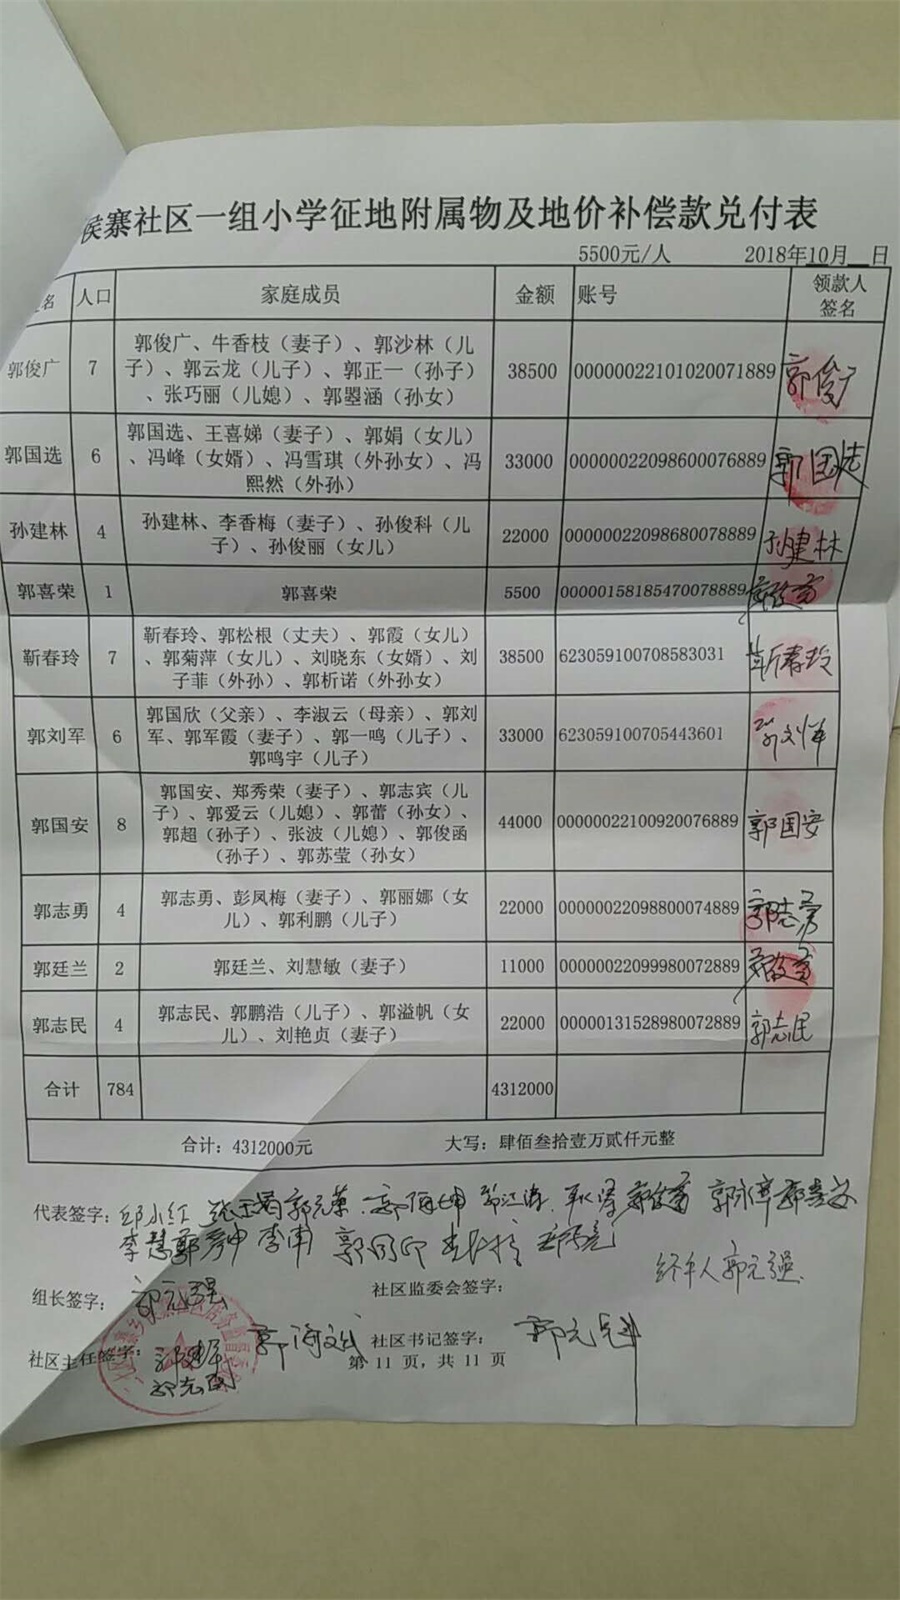 侯寨社区一组小学征地附属物及地价补偿款兑付表
5500元/人 2018年10月__日
名 人口 家庭成员 金额 账号 领款人签名
郭俊广 7 郭俊广、牛香枝（妻子）、郭沙林（儿子）、郭云龙（儿子）、郭正一（孙子）、张巧丽（儿媳）、郭曌涵（孙女） 38500 00000022101020071889 郭俊广
郭国选 6 郭国选、王喜娣（妻子）、郭娟（女儿）、冯峰（女婿）、冯雪琪（外孙女）、冯熙然（外孙） 33000 00000022098600076889 郭国选
孙建林 4 孙建林、李香梅（妻子）、孙俊科（儿子）、孙俊丽（女儿） 22000 00000022098680078889 孙建林
郭喜荣 1 郭喜荣 5500 00000158185470078889
靳春玲 7 靳春玲、郭松根（丈夫）、郭霞（女儿）、郭菊萍（女儿）、刘晓东（女婿）、刘子菲（外孙）、郭析诺（外孙女） 38500 623059100708583031 靳春玲
郭刘军 6 郭国欣（父亲）、李淑云（母亲）、郭刘军、郭军霞（妻子）、郭一鸣（儿子）、郭鸣宇（儿子） 33000 623059100705443601
郭国安 8 郭国安、郑秀荣（妻子）、郭志宾（儿子）、郭爱云（儿媳）、郭蕾（孙女）、郭超（孙子）、张波（儿媳）、郭俊函（孙子）、郭苏莹（孙女） 44000 00000022100920076889 郭国安
郭志勇 4 郭志勇、彭凤梅（妻子）、郭丽娜（女儿）、郭利鹏（儿子） 22000 00000022098800074889 郭志勇
郭廷兰 2 郭廷兰、刘慧敏（妻子） 11000 00000022099980072889
郭志民 4 郭志民、郭鹏浩（儿子）、郭溢帆（女儿）、刘艳贞（妻子） 22000 00000131528980072889 郭志民
合计 784 4312000
合计：4312000元 大写：肆佰叁拾壹万贰仟元整
代表签字：邱小红
李慧 李南
经手人郭元强
组长签字：郭元强 社区监委会签字：
社区主任签字： 社区书记签字：
第 11 页，共 11 页